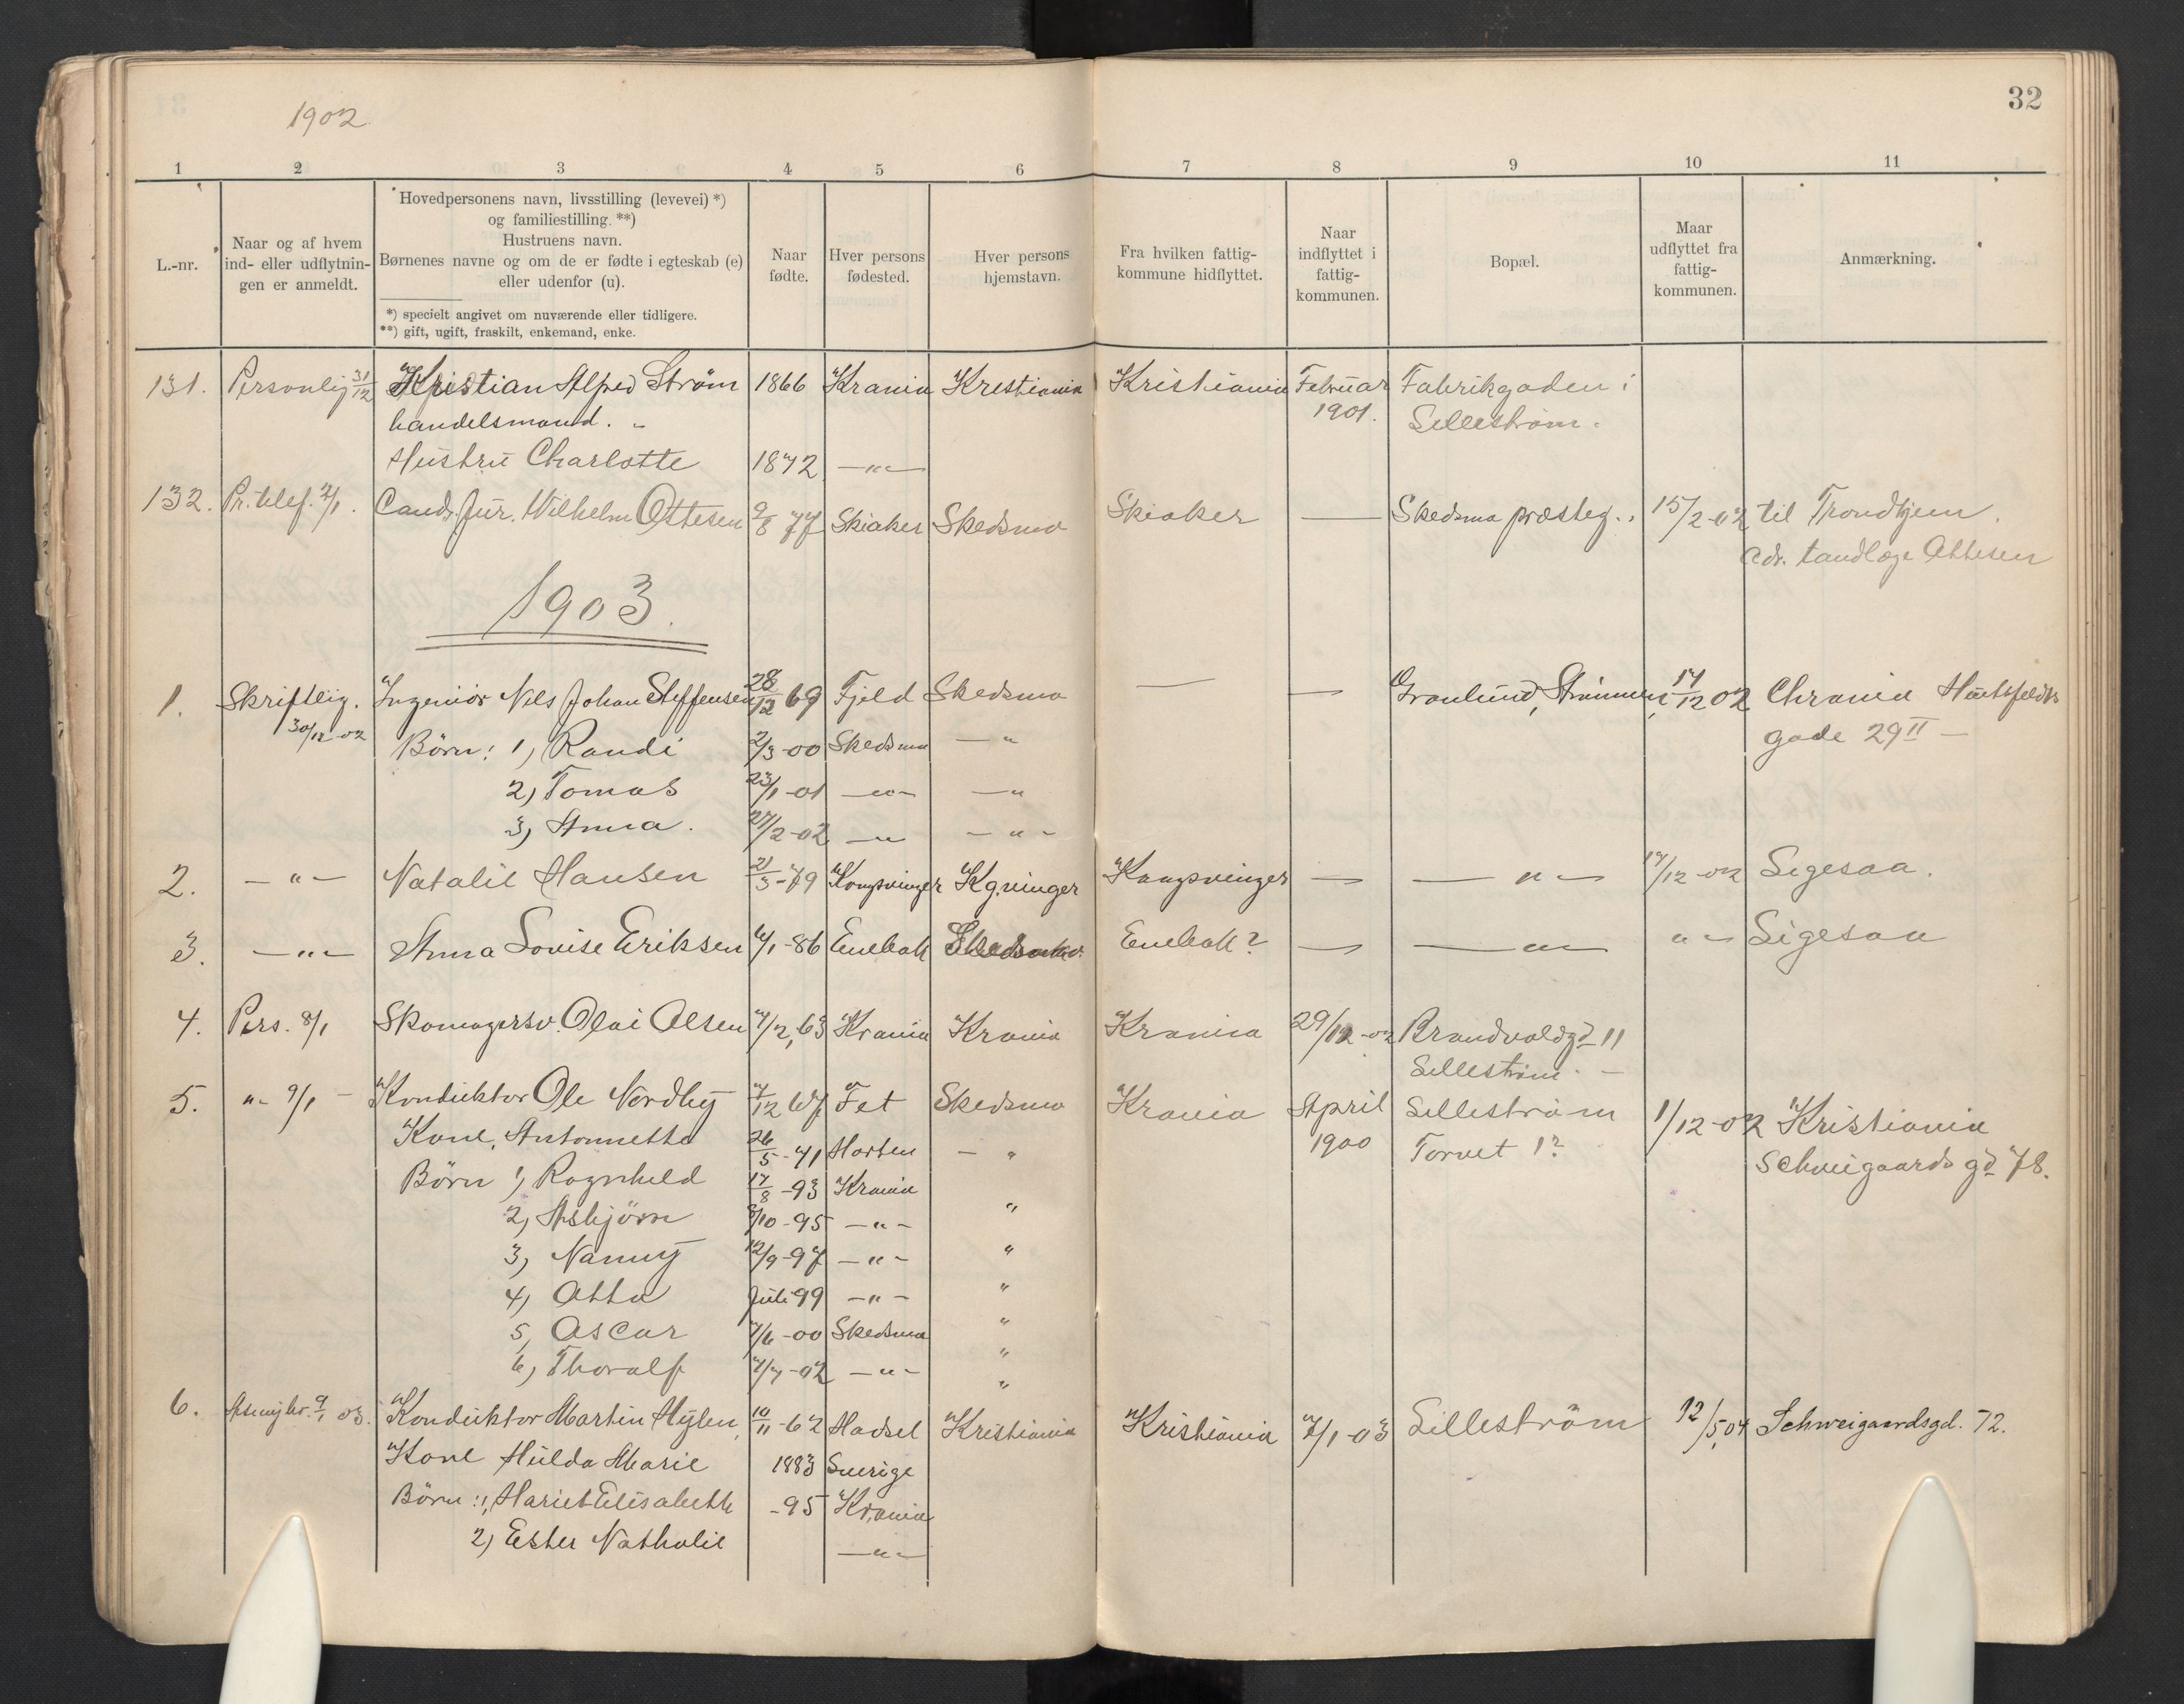 1902.
32
1 2 3 4 5 6 7 8 9 10 11
L.-nr.
Naar og af hvem
ind- eller udflytnin-
gen er anmeldt.
Hovedpersonens navn, livsstilling (levevei) *)
og familiestilling. **)
Hustruens navn.
Børnenes navne og om de er fødte i egteskab (e)
eller udenfor (u).
*) specielt angivet om nuværende eller tidligere.
**) gift, ugift, fraskilt, enkemand, enke.
Naar
fødte.
Hver persons
fødested.
Hver persons
hjemstavn.
Fra hvilken fattig-
kommune hidflyttet.
Naar
indflyttet i
fattig-
kommunen.
Bopæl.
Maar
udflyttet fra
fattig-
kommunen.
Anmærkning.
131. Personlig 31/12 Kristian Alfred Strøm 1866 Krania Kristiania Kristiania Februar Fabrikgaden i
handelsmand. 1901. Lilleström.
Hustru Charlotte 1872 —"—
132. Pr. telef. 2/1. Cand. Jur. Wilhelm Ottesen 9/8 77 Skiaker Skedsmo Skiaker — Skedsmo præsteg. 15/2-02 til Trondhjem.
adr. tandlæge Ottesen
1903.
1. Skriftlig. Ingeniör Nils Johan Steffensen 28/12 69 Fjeld Skedsmo — — Granlund, Strömmen, 17/12 02 Chrania Huitfeldts
30/12-02 Börn: 1, Randi 2/3-00 Skedsmo —" gade 29 II —
2, Tomas 23/1-01 —"— —"
3, Anna. 27/2-02 —"— —"—
2. —"— Natalie Hansen 21/3-79 Kongsvinger Kg.vinger Kongsvinger — —"— 17/12-02 Ligesaa.
3. —"— Anna Lovise Eriksen 6/1-86 Enebak Enebak? — —"— "— Ligesaa
4. Pers. 8/1 Skomagersv. Olai Olsen 7/2,63 Krania Krania Krania 29/12-02 Brandvoldgd 11
Lilleström. —
5. "— 9/1 — Konduktør Ole Nordby 7/12 67 Fet Skedsmo Krania April Lilleström 1/12-02 Kristiania
Kone, Antonnette 26/5-71 Horten — " 1900 Torvet 1? Schweigaards gd 78.
Börn 1, Ragnhild 17/8-93 Krania
2, Asbjörn 8/10-95 —"— "
3, Nanny 12/9-97 —"— "
4, Otto Juli 99 —"— "
5, Oscar 7/6-00 Skedsmo "
6, Thoralf 7/7-02 —"— "
6. 9/1 03. Konduktør Martin Hylen, 10/11-62 Hadsel Kristiania Kristiania 7/1-03 Lilleström 12/5,04 Schweigaardsgd. 72.
Kone Hulda Marie 1883 Sverige
Börn: 1, Hariet Elisabeth -95 Krania
2, Ester Nathalie —"—